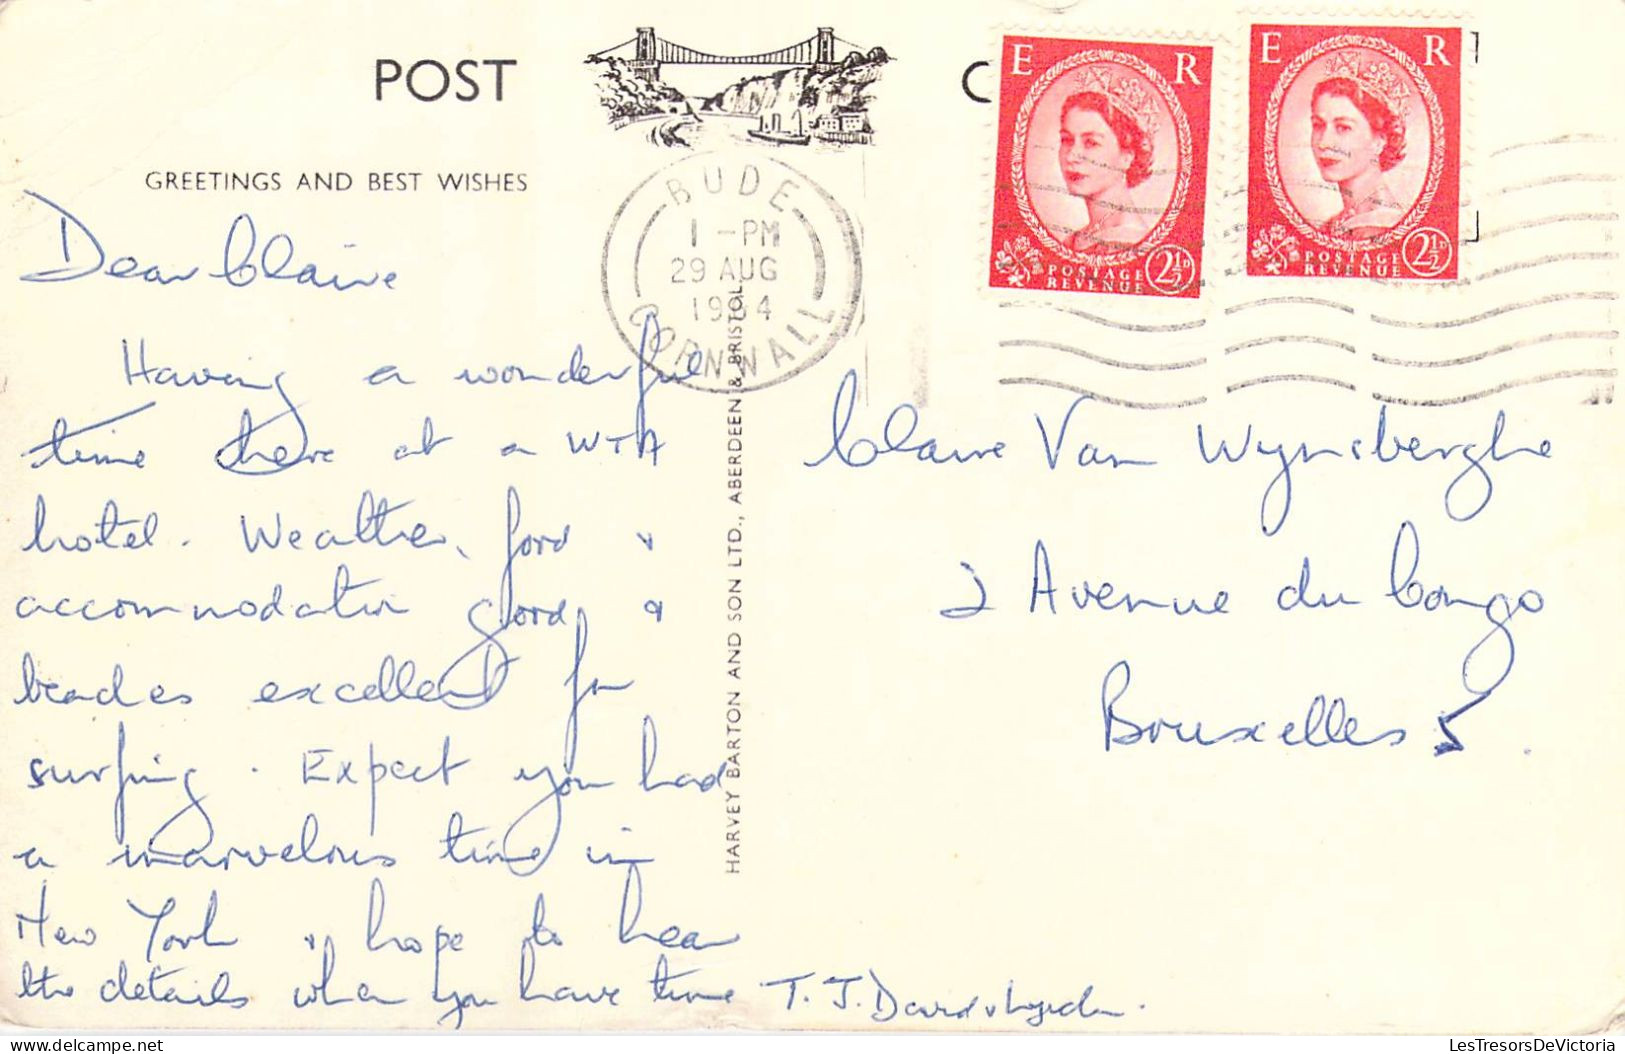 POST C
GREETINGS AND BEST WISHES
E R
POSTAGE
REVENUE 2½D
E R
POSTAGE
REVENUE 2½D
BUDE
1-PM
29 AUG
1964
CORNWALL
Dear Claire
Having a wonderful
time here at a WTA
hotel. Weather, food &
accommodation good, &
beaches excellent for
surfing. Expect you had
a marvelous time in
New York & hope to hear
the details when you have time
T. J. David &
HARVEY BARTON AND SON LTD., ABERDEEN & BRISTOL.
Claire Van Wynsberghe
2 Avenue du Congo
Bruxelles 5.
LesTresorsDeVictoria.com